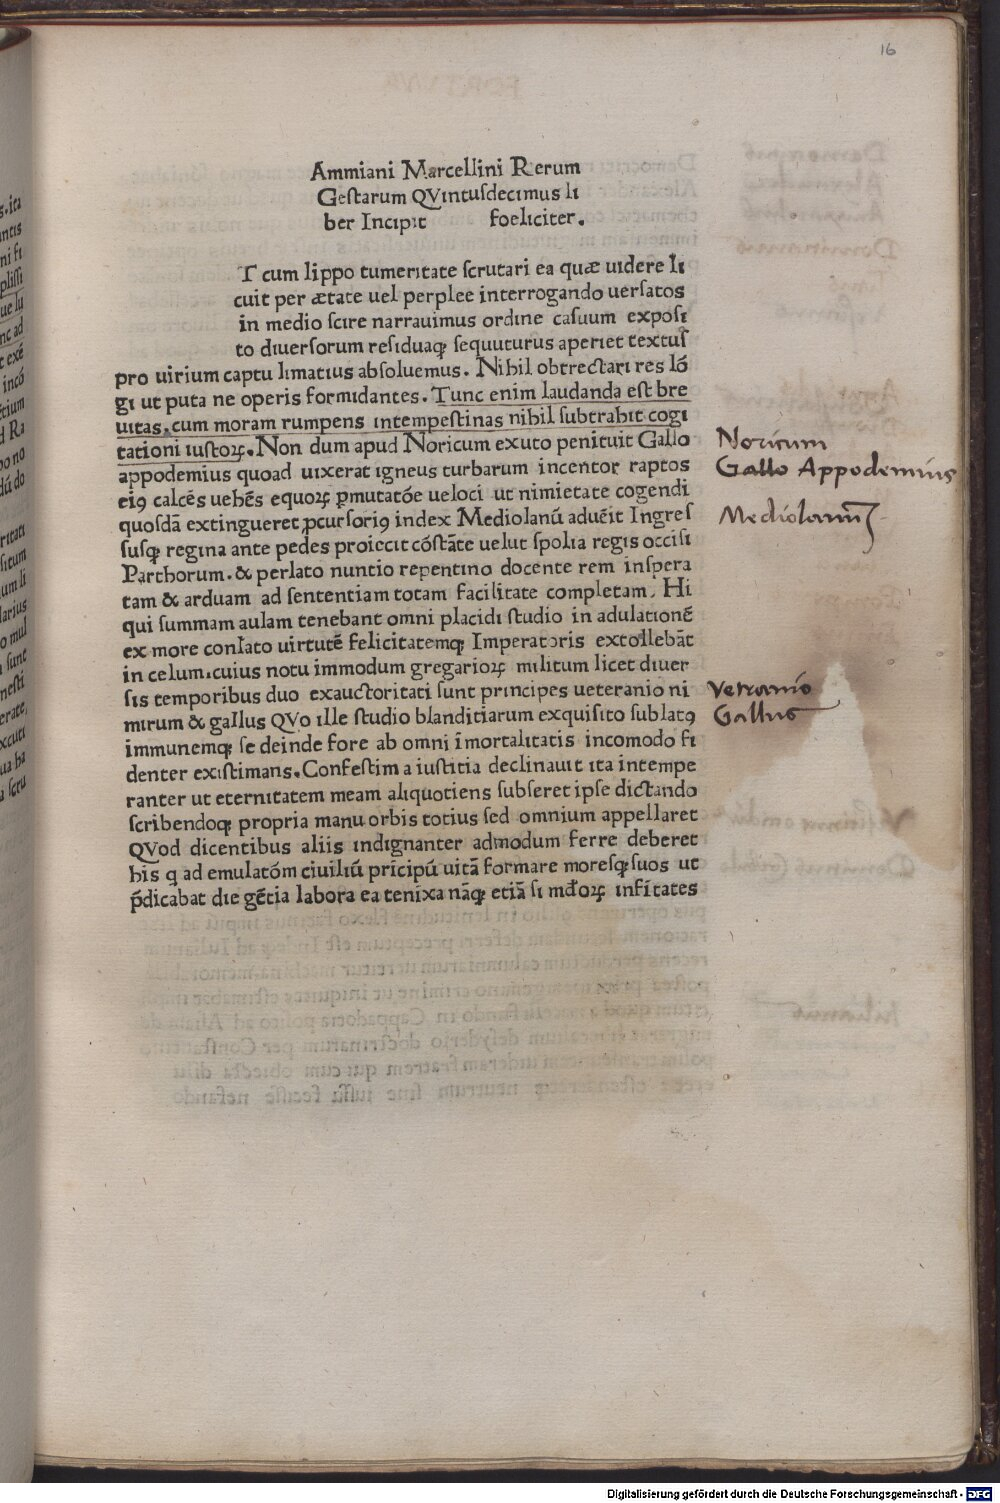 16
Ammiani Marcellini Rerum
Gestarum QVintusdecimus li
ber Incipit foeliciter.
T cum lippo tumeritate scrutari ea quæ uidere li
cuit per ætate uel perplee interrogando uersatos
in medio scire narrauimus ordine casuum exposi
to diuersorum residuaqꝫ sequuturus aperiet textus
pro uirium captu limatius absoluemus. Nihil obtrectari res lõ
gi ut puta ne operis formidantes. Tunc enim laudanda est bre
uitas, cum moram rumpens intempestinas nihil subtrabit cogi
tationi iustoꝝ. Non dum apud Noricum exuto penituit Gallo
appodemius quoad uixerat igneus turbarum incentor raptos
eiꝯ calcẽs uehẽs equoꝝ ꝑmutatõe ueloci ut nimietate cogendi
quosdã extingueret ꝑcursoriꝯ index Mediolanũ aduẽit Ingres
susqꝫ regina ante pedes proiecit cõstãte uelut spolia regis occisi
Parthorum. & perlato nuntio repentino docente rem inspera
tam & arduam ad sententiam totam facilitate completam. Hi
qui summam aulam tenebant omni placidi studio in adulationẽ
ex more conlato uirtutẽ felicitatemqꝫ Imperatoris extollebãt
in celum.cuius notu immodum gregarioꝝ militum licet diuer
sis temporibus duo exauctoritati sunt principes ueteranio ni
mirum & gallus QVo ille studio blanditiarum exquisito sublatꝯ
immunemqꝫ se deinde fore ab omni ĩmortalitatis incomodo fi
denter existimans. Confestim a iustitia declinauit ita intempe
ranter ut eternitatem meam aliquotiens subseret ipse dictando
scribendoqꝫ propria manu orbis totius sed omnium appellaret
QVod dicentibus aliis indignanter admodum ferre deberet
his q ad emulatõm ciuiliũ pricipũ uitã formare moresqꝫ suos ut
p̃dicabat die gẽtia labora ea tenixa nãqꝫ etiã si mdoꝝ infitates
Noricum
Gallo Appodemius
Mediolanum
Vetranio
Gallus
Digitalisierung gefördert durch die Deutsche Forschungsgemeinschaft - DFG